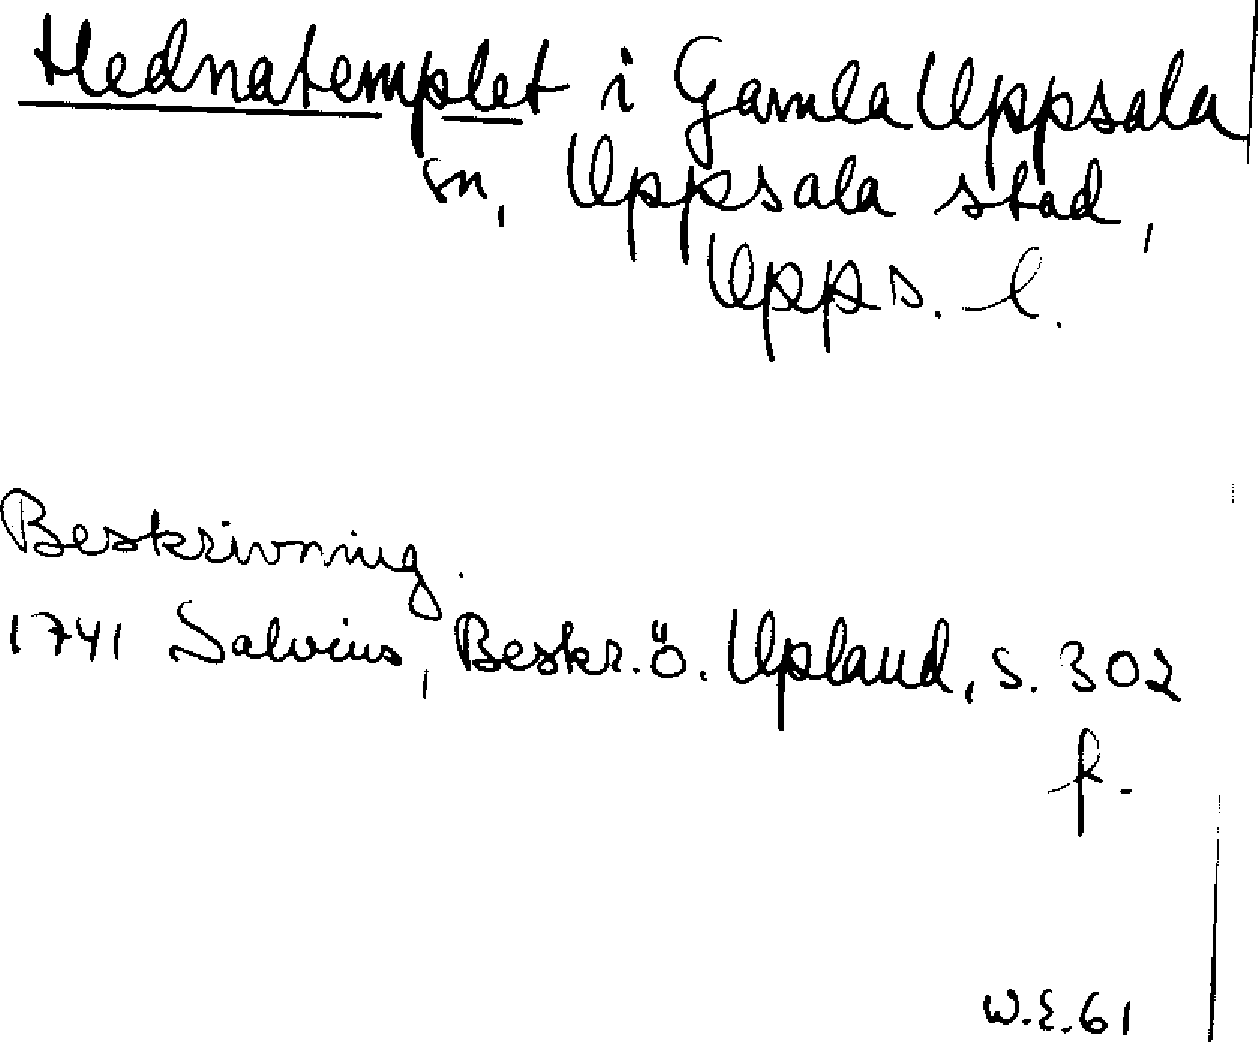 Hednatemplet i Gamla Uppsala
sn, Uppsala stad,
Upps. l.
Beskrivning.
1741 Salvius, Beskr. ö. Upland, s. 302
f.
W.E.61